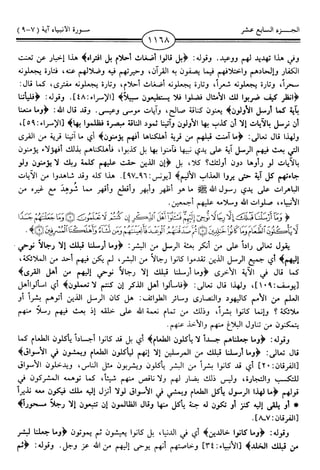 الجـــزء السابع عشر
١١٦٨
سورة الأنبياء آية (٧-٩)
وفي هذا تهديد لهم ووعيد. وقوله: ﴿بل قالوا أضغاث أحلام بل افتراه﴾ هذا إخبار عن تعنت
الكفار وإلحادهم واختلافهم فيما يصفون به القرآن، وحيرتهم فيه وضلالهم عنه، فتارة يجعلونه
سحراً، وتارة يجعلونه شعراً، وتارة يجعلونه أضغاث أحلام، وتارة يجعلونه مفترى، كما قال:
﴿انظر كيف ضربوا لك الأمثال فضلوا فلا يستطيعون سبيلاً﴾ [الإسراء: ٤٨]. وقوله: ﴿فليأتنا
بآية كما أرسل الأولون﴾ يعنون كناقة صالح، وآيات موسى وعيسى. وقد قال الله: ﴿وما منعنا
أن نرسل بالآيات إلا أن كذب بها الأولون وآتينا ثمود الناقة مبصرة فظلموا بها﴾ [الإسراء: ٥٩]،
ولهذا قال تعالى: ﴿ما آمنت قبلهم من قرية أهلكناها أفهم يؤمنون﴾ أي ما آتينا قرية من القرى
التي بعث فيهم الرسل آية على يدي نبيها فآمنوا بها بل كذبوا، فأهلكناهم بذلك أفهؤلاء يؤمنون
بالآيات لو رأوها دون أولئك؟ كلا، بل ﴿إن الذين حقت عليهم كلمة ربك لا يؤمنون ولو
جاءتهم كل آية حتى يروا العذاب الأليم﴾ [يونس: ٩٦، ٩٧]. هذا كله وقد شاهدوا من الآيات
الباهرات على يدي رسول الله ﷺ ما هو أظهر وأبهر وأقطع وأقهر مما شُوهِدَ مع غيره من
الأنبياء، صلوات الله وسلامه عليهم أجمعين.
وَمَا أَرْسَلْنَا قَبْلَكَ إِلَّا رِجَالًا نُوحِي إِلَيْهِمْ فَاسْأَلُوا أَهْلَ الذِّكْرِ إِن كُنتُمْ لَا تَعْلَمُونَ وَمَا جَعَلْنَاهُمْ جَسَدًا
يقول تعالى راداً على من أنكر بعثة الرسل من البشر: ﴿وما أرسلنا قبلك إلا رجالاً نوحي
إليهم﴾ أي جميع الرسل الذين تقدموا كانوا رجالاً من البشر، لم يكن فيهم أحد من الملائكة،
كما قال في الآية الأخرى ﴿وما أرسلنا قبلك إلا رجالاً نوحي إليهم من أهل القرى﴾
[يوسف: ١٠٩]. ولهذا قال تعالى: ﴿فاسألوا أهل الذكر إن كنتم لا تعلمون﴾ أي اسألوا أهل
العلم من الأمم كاليهود والنصارى وسائر الطوائف: هل كان الرسل الذين أتوهم بشراً أو
ملائكة ؟ وإنما كانوا بشراً، وذلك من تمام نعمة الله على خلقه إذ بعث فيهم رسلاً منهم
يتمكنون من تناول البلاغ منهم والأخذ عنهم.
وقوله: ﴿وما جعلناهم جسداً لا يأكلون الطعام﴾ أي بل قد كانوا أجساداً يأكلون الطعام كما
قال تعالى: ﴿وما أرسلنا قبلك من المرسلين إلا إنهم ليأكلون الطعام ويمشون في الأسواق﴾
[الفرقان: ٢٠] أي قد كانوا بشراً من البشر يأكلون ويشربون مثل الناس، ويدخلون الأسواق
للتكسب والتجارة، وليس ذلك بضار لهم ولا ناقص منهم شيئاً، كما توهمه المشركون في
قولهم ﴿ما لهذا الرسول يأكل الطعام ويمشي في الأسواق لولا أنزل إليه ملك فيكون معه نذيراً
* أو يلقى إليه كنز أو تكون له جنة يأكل منها وقال الظالمون إن تتبعون إلا رجلاً مسحوراً﴾
[الفرقان: ٧، ٨].
وقوله: ﴿وما كانوا خالدين﴾ أي في الدنيا، بل كانوا يعيشون ثم يموتون ﴿وما جعلنا لبشر
من قبلك الخلد﴾ [الأنبياء: ٣٤] وخاصتهم أنهم يوحى إليهم من الله عز وجل. وقوله: ﴿ثم